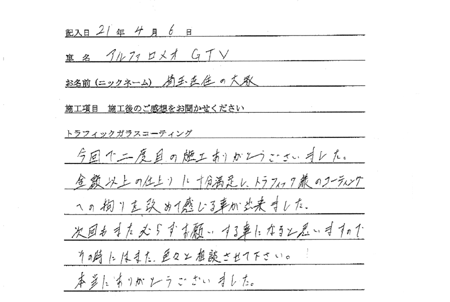 記入日 21年 4月 6日
車名 アルファロメオ GTV
お名前(ニックネーム) 埼玉在住の大取
施工項目 施工後のご感想をお聞かせください
トラフィックガラスコーティング
今回で二度目の施工ありがとうございました。
金額以上の仕上りに十分満足し、トラフィック様のコーティング
への拘りを改めて感じる事が出来ました。
次回もまた必らずお願いする事になると思いますので
その時にはまた、色々と相談させて下さい。
本当にありがとうございました。